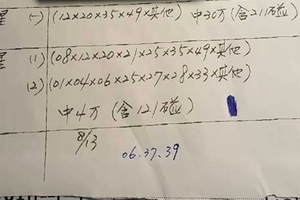 (一) (12×20×35×49×其他) 中30万(含211碰)
(1) (08×12×20×21×25×35×49×其他)
(2) (01×04×06×25×27×28×33×其他)
中4万 (含121碰)
8/13
06.37.39